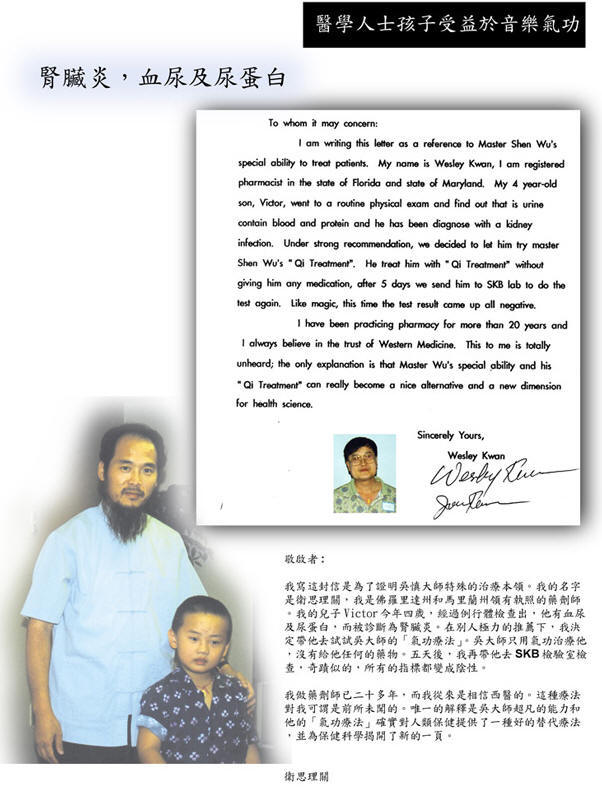 醫學人士孩子受益於音樂氣功
腎臟炎，血尿及尿蛋白
To whom it may concern:
I am writing this letter as a reference to Master Shen Wu's
special ability to treat patients. My name is Wesley Kwan, I am registered
pharmacist in the state of Florida and state of Maryland. My 4 year-old
son, Victor, went to a routine physical exam and find out that is urine
contain blood and protein and he has been diagnose with a kidney
infection. Under strong recommendation, we decided to let him try master
Shen Wu's "Qi Treatment". He treat him with "Qi Treatment" without
giving him any medication, after 5 days we send him to SKB lab to do the
test again. Like magic, this time the test result came up all negative.
I have been practicing pharmacy for more than 20 years and
I always believe in the trust of Western Medicine. This to me is totally
unheard; the only explanation is that Master Wu's special ability and his
"Qi Treatment" can really become a nice alternative and a new dimension
for health science.
Sincerely Yours,
Wesley Kwan
敬啟者：
我寫這封信是為了證明吳慎大師特殊的治療本領。我的名字
是衛思理關，我是佛羅里達州和馬里蘭州領有執照的藥劑師
。我的兒子Victor今年四歲，經過例行體檢查出，他有血尿
及尿蛋白，而被診斷為腎臟炎。在別人極力的推薦下，我決
定帶他去試試吳大師的「氣功療法」。吳大師只用氣功治療他
，沒有給他任何的藥物。五天後，我再帶他去SKB檢驗室檢
查，奇蹟似的，所有的指標都變成陰性。
我做藥劑師已二十多年，而我從來是相信西醫的。這種療法
對我可謂是前所未聞的。唯一的解釋是吳大師超凡的能力和
他的「氣功療法」確實對人類保健提供了一種好的替代療法
，並為保健科學揭開了新的一頁。
衛思理關